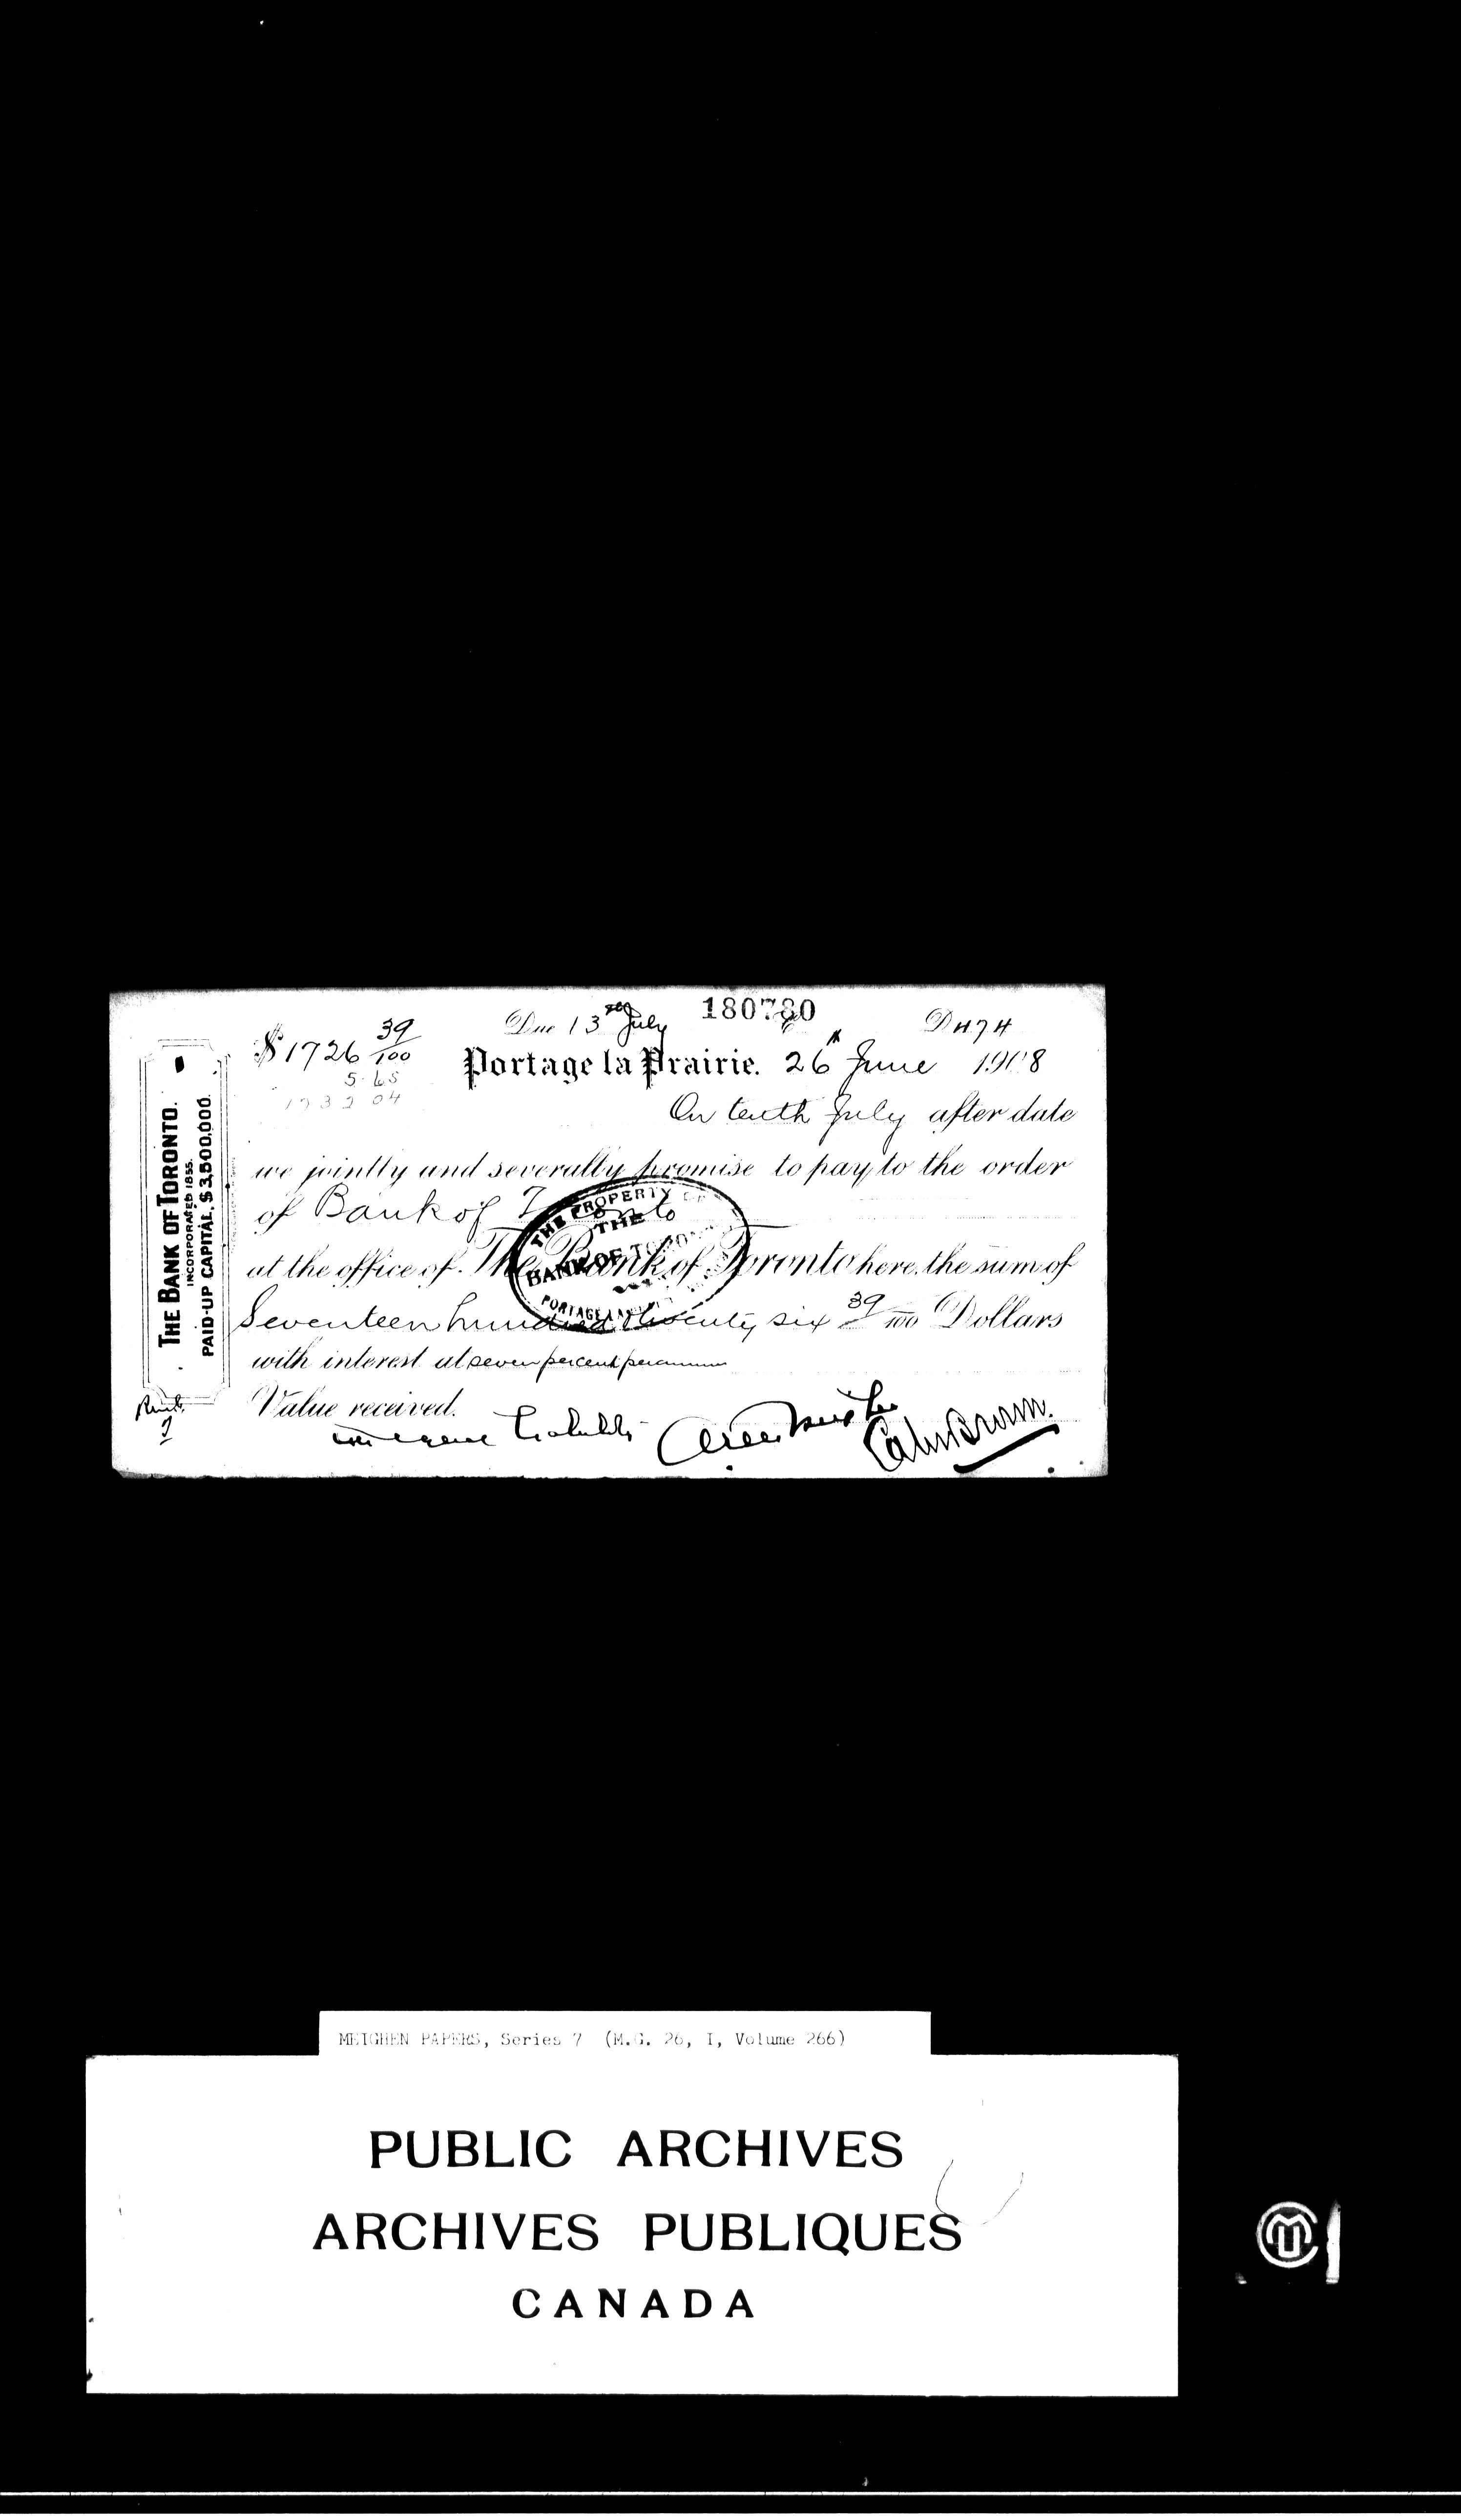 180780
Due 13th July
D4474
$1726 39/100
Portage la Prairie. 26th June 1908
5.65
1732 04
On tenth July after date
we jointly and severally promise to pay to the order
of Bank of Toronto
at the office of The Bank of Toronto here, the sum of
Seventeen hundred & twenty six 39/100 Dollars
with interest at seven per cent per annum
Value received.
THE BANK OF TORONTO.
INCORPORATED 1855.
PAID-UP CAPITAL, $3,500,000.
THE PROPERTY OF
THE
BANK OF TORONTO
PORTAGE LA
MEIGHEN PAPERS, Series 7 (M.G. 26, I, Volume 266)
PUBLIC ARCHIVES
ARCHIVES PUBLIQUES
CANADA